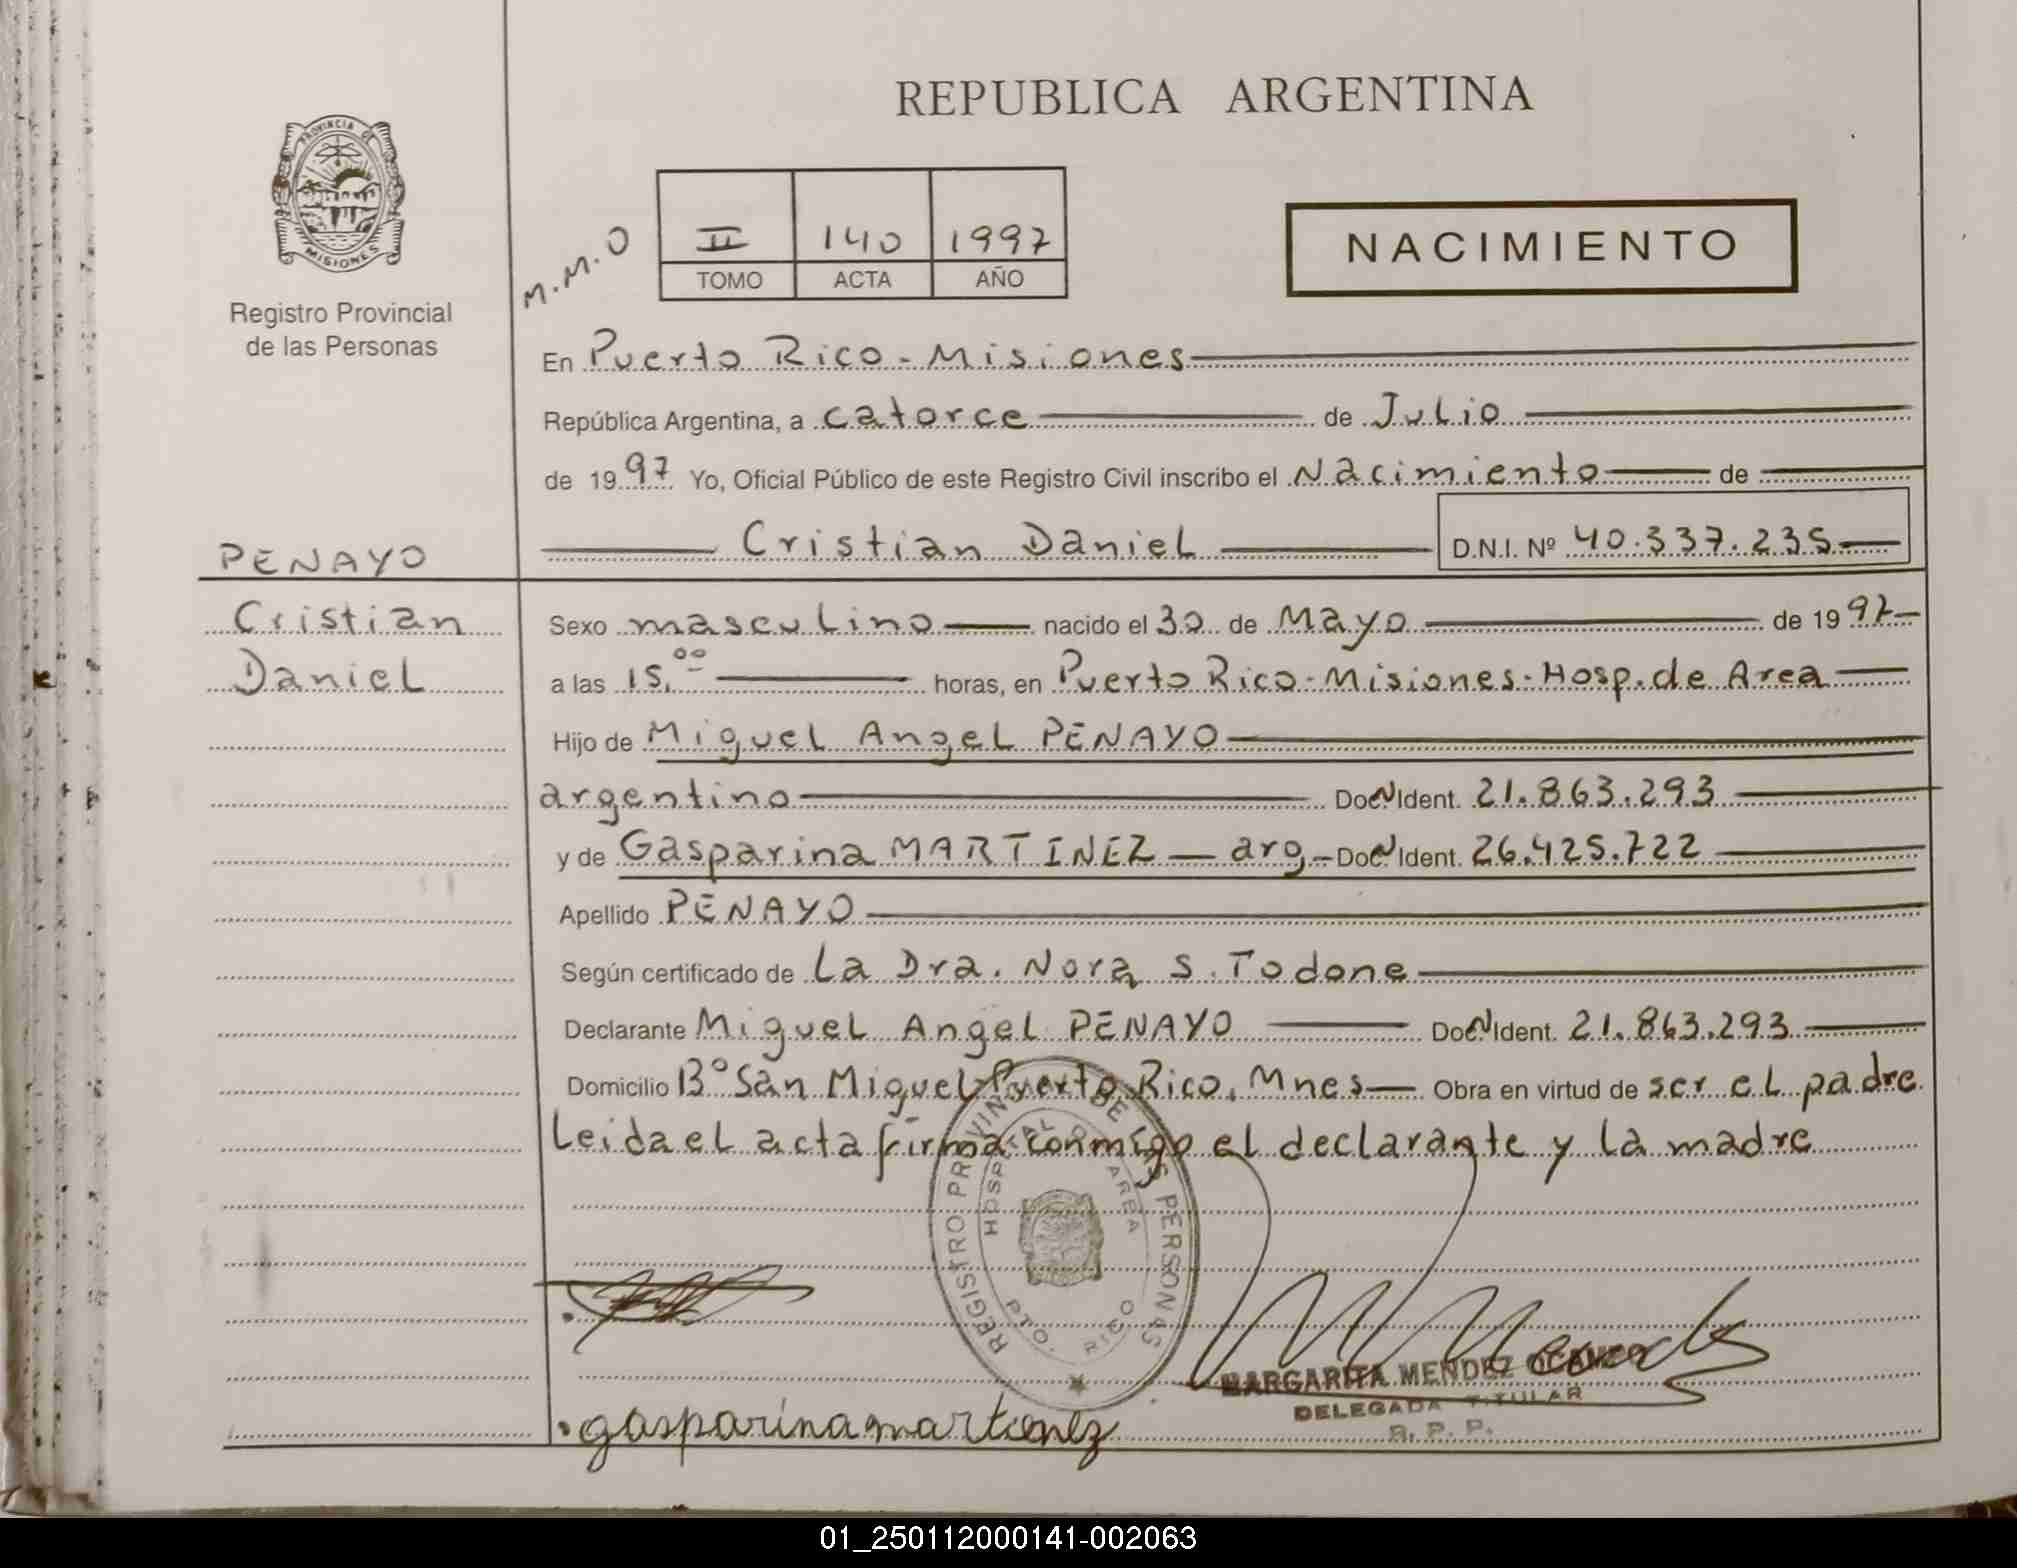 REPUBLICA ARGENTINA
PROVINCIA DE MISIONES
Registro Provincial
de las Personas
M.M.O
II 140 1997
TOMO ACTA AÑO
NACIMIENTO
En Puerto Rico - Misiones
República Argentina, a catorce de Julio
de 1997 Yo, Oficial Público de este Registro Civil inscribo el Nacimiento de
Cristian Daniel D.N.I. Nº 40.337.235
PENAYO
Cristian
Daniel
Sexo masculino nacido el 30 de Mayo de 1997
a las 15,00 horas, en Puerto Rico - Misiones - Hosp. de Area
Hijo de Miguel Angel PENAYO
argentino Doc Ident. 21.863.293
y de Gasparina MARTINEZ — arg — Doc Ident. 26.425.722
Apellido PENAYO
Según certificado de La Dra. Nora S. Todone
Declarante Miguel Angel PENAYO Doc Ident. 21.863.293
Domicilio Bº San Miguel - Puerto Rico, Mnes — Obra en virtud de ser el padre
Leida el acta firma conmigo el declarante y la madre
REGISTRO PROVINCIAL DE LAS PERSONAS
HOSPITAL DE AREA
PTO. RICO
MARGARITA MENDEZ OCAMPO
DELEGADA TITULAR
R. P. P.
gasparina martinez
01_250112000141-002063